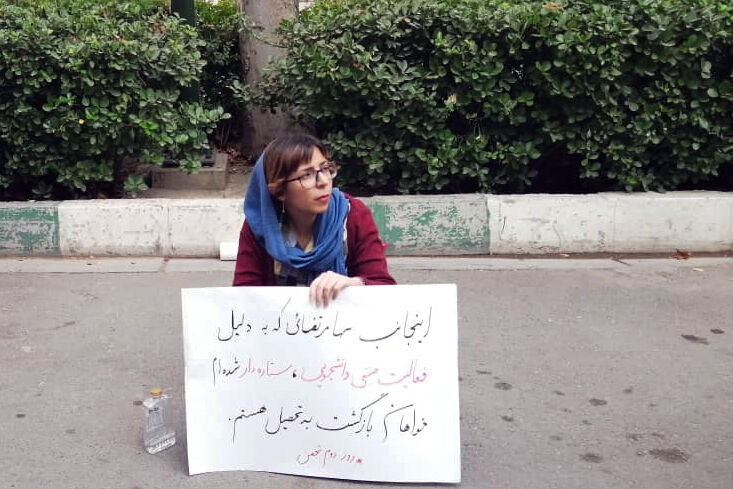 اینجانب سها مرتضائی که به دلیل
فعالیت صنفی دانشجویی، ستاره‌دار شده‌ام
خواهان بازگشت به تحصیل هستم.
*دور دوم تحصن